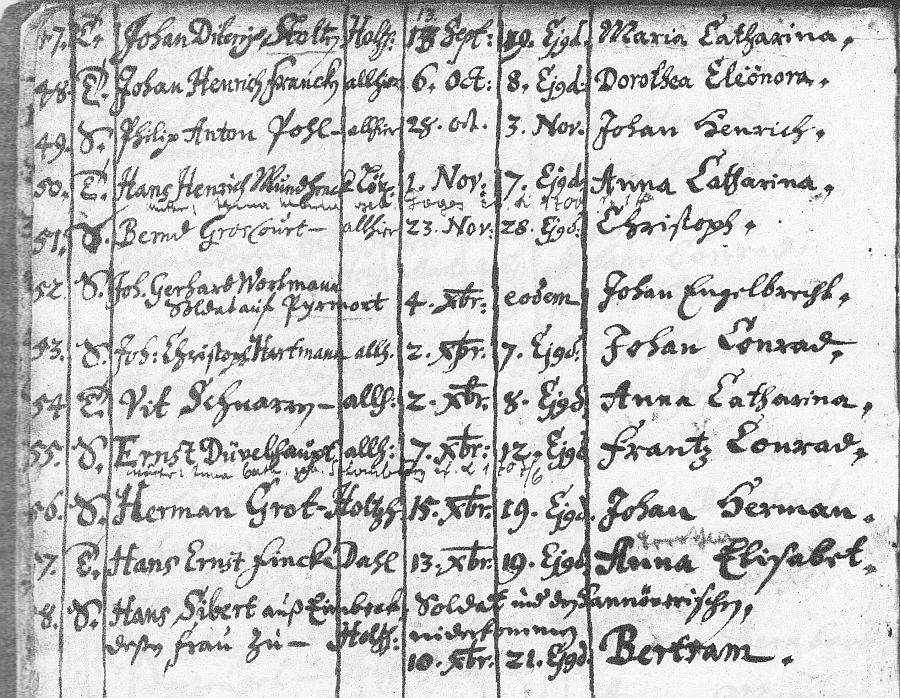 47. T. Johan Diterig Stoltz Holtzh: 13 Sept: 19. Ejgd. Maria Catharina.
48. T. Johan Henrich Franck allhier 6. Oct: 8. Ejgd: Dorothea Eleönora.
49. S. Philip Anton Pohl - allhier 28. Oct. 3. Nov. Johan Henrich.
50. T. Hans Henrich Mundhenck 1. Nov: 7. Ejgd: Anna Catharina.
51. S. Bernd Groscourt - allhier 23. Nov: 28. Ejgd: Christoph.
52. S. Joh. Gerhard Wortmann
Soldat auf Pyrmont 4. Xbr: eodem Johan Engelbrecht.
53. S. Joh: Christoph Hartmann allh. 2. Xbr. 7. Ejgd: Johan Conrad.
54. T. Vit Schnarr - allh: 2. Xbr. 8. Ejgd Anna Catharina.
55. S. Ernst Düvelshaupt allh: 7. Xbr: 12. Ejgd Frantz Conrad.
56. S. Herman Grot - Holtzh. 15. Xbr: 19. Ejgd. Johan Herman.
7. T. Hans Ernst Fincke Dahl 13. Xbr: 19. Ejgd. Anna Elisabet.
8. S. Hans Sibert auß Eimbeck. Soldat
deßen Frau zu - Holtzh: niderkommen
10. Xbr: 21. Ejgd. Bertram.